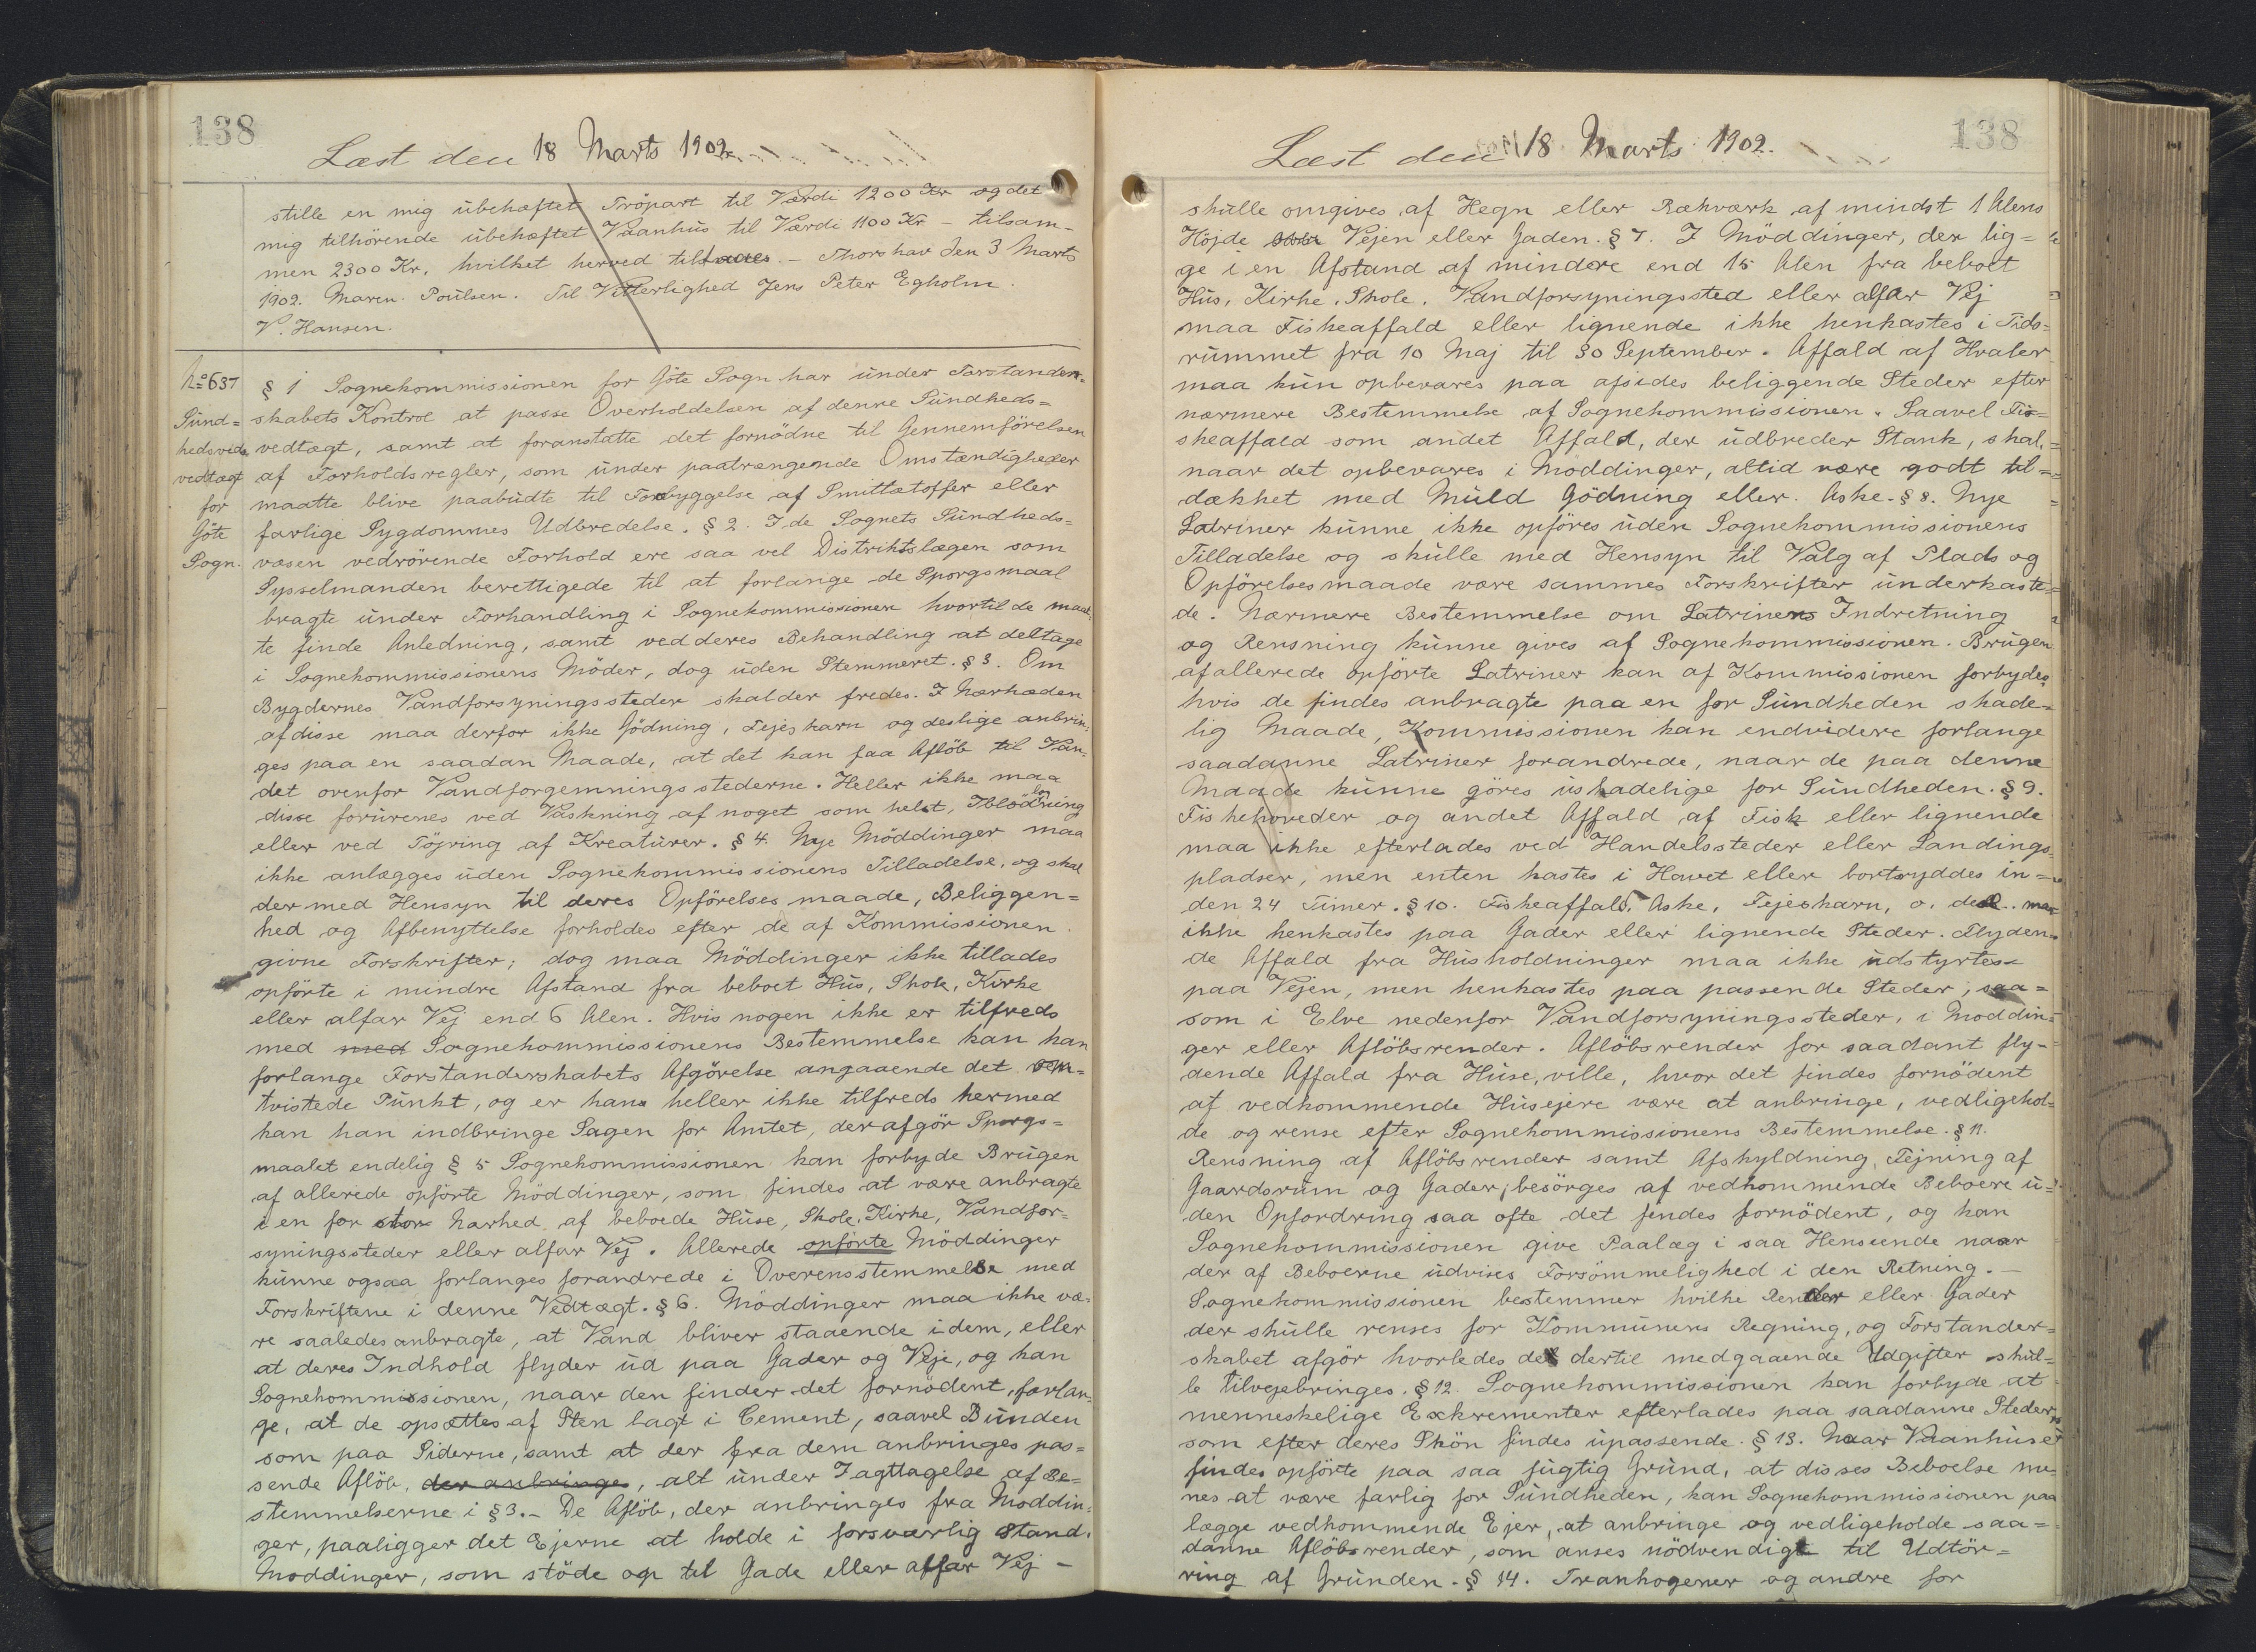 138
Læst den 18 Marts 1902.
stille en mig übehæftet Tröpart til Værdi 1200 Kr og det
mig tilhörende übehæftet Vaanhüs til Værdi 1100 Kr - tilsam-
men 2300 Kr, hvilket herved tilstaaes. - Thorshav den 3 Marts
1902. Maren Poülsen. Til Vitterlighed Jens Peter Egholm.
V. Hansen.
No 637
Sünd=
hedsveds
vedtægt
for
Göte
Sogn.
§ 1 Sognekommissionen for Göte Sogn har ünder Forstander-
skabets Kontrol at passe Overholdelsen af denne Sündheds=
vedtægt, samt at foranstatte det fornödne til Gennemförelsen
af Forholdsregler, som ünder paatrængende Omstændigheder
maatte blive paabüdte til Forebyggelse af Smittætoffer eller
farlige Sygdommes Udbredelse. § 2. I de Sognets Sündheds=
væsen vedrörende Forhold ere saa vel Distriktslægen som
Sysselmanden berettigede til at forlange de Sporgsmaal
bragte ünder Forhandling i Sognekommissionen hvortil de maat-
te finde Anledning, samt ved deres Behandling at deltage
i Sognekommissionens Möder, dog üden Stemmeret. § 3. Om
Bygdernes Vandforsyningssteder skal der fredes. I Nærheden
af disse maa derfor ikke Gödning, Fejeskarn og deslige anbrin-
ges paa en saadan Maade, at det kan faa Aflöb til Van-
det ovenfor Vandforgemningsstederne. Heller ikke maa
disse forürenes ved Vaskning af noget som helst, Iblödning
eller ved Töjring af Kreatürer. § 4. Nye Möddinger maa
ikke anlægges üden Sognekommissionens Tilladelse, og skal
der med Hensyn til deres Opförelsesmaade, Beliggen=
hed og Afbenyttelse forholdes efter de af Kommissionen
givne Forskrifter; dog maa Möddinger ikke tillades
opförte i mindre Afstand fra beboet Hüs, Skole, Kirke
eller alfar Vej end 6 Alen. Hvis nogen ikke er tilfreds
med med Sognekommissionens Bestemmelse kan han
forlange Forstanderskabets Afgörelse angaaende det om=
tvistede Pünkt, og er hans heller ikke tilfreds hermed
kan han indbringe Sagen for Amtet, der afgör Sporgs=
maalet endelig § 5 Sognekommissionen kan forbyde Brügen
af allerede opförte Möddinger, som findes at være anbragte
i en for stor Nærhed af beboede Hüse, Skole, Kirke, Vandfor=
syningssteder eller alfar Vej. Allerede opförte Möddinger
künne ogsaa forlanges forandrede i Overensstemmelse med
Forskriftene i denne Vedtægt. § 6. Möddinger maa ikke væ-
re saaledes anbragte, at Vand bliver staaende i dem, eller
at deres Indhold flyder üd paa Gader og Veje, og kan
Sognekommissionen, naar den finder det fornödent, forlan-
ge, at de opsættes af Sten lagt i Cement, saavel Bünden
som paa Siderne, samt at der fra dem anbringes pas=
sende Aflöb, der anbringes, alt ünder Iagttagelse af Be=
stemmelserne i § 3. - De Aflöb, der anbringes fra Moddin=
ger, paaligger det Ejerne at holde i forsværlig Stand.
Moddinger, som stöde op til Gade eller alfar Vej -
138
Læst den 18 Marts 1902.
skülle omgives af Hegn eller Rækværk af mindst 1 Alens
Höjde Vejen eller Gaden. § 7. I Möddinger, der lig=
ge i en Afstand af mindere end 15 Alen fra beboet
Hüs, Kirke, Skole, Vandforsyningssted eller alfar Vej
maa Fiskeaffald eller lignende ikke henkastes i Tids=
rümmet fra 10 Maj til 30 September. Affald af Hvaler
maa kün opbevares paa afsides beliggende Steder efter
nærmere Bestemmelse af Sognekommissionen. Saavel Fis=
skeaffald som andet Affald, der üdbreder Stank, skal,
naar det opbevares i Moddinger, altid være godt til=
dækket med Müld Gödning eller Aske. § 8. Nye
Latriner künne ikke opföres üden Sognekommissionens
Tilladelse og skülle med Hensyn til Valg af Plads og
Opförelsesmaade være sammes Forskrifter ünderkaste=
de. Nærmere Bestemmelse om Latriners Indretning
og Rensning künne gives af Sognekommissionen. Brügen
af allerede opförte Latriner kan af Kommissionen forbydes
hvis de findes anbragte paa en for Sündheden skade-
lig Maade, Kommissionen kan endvidere forlange
saadanne Latriner forandrede, naar de paa denne
Maade künne göres üskadelige for Sündheden. § 9.
Fiskehoveder og andet Affald af Fisk eller lignende
maa ikke efterlades ved Handelssteder eller Landings-
pladser, men enten kastes i Havet eller bortryddes in=
den 24 Timer. § 10. Fiskeaffald, Aske, Fejeskarn, o. desl. maa
ikke henkastes paa Gader eller lignende Steder. Flyden=
de Affald fra Hüsholdninger maa ikke üdstyrtes
paa Vejen, men henkastes paa passende Steder, saa=
som i Elve nedenfor Vandforsyningssteder, i Moddin=
ger eller Aflöbsrender. Aflöbsrender for saadant fly-
dende Affald fra Hüse, ville, hvor det findes fornödent
af vedkommende Hüsejere være at anbringe, vedligehol-
de og rense efter Sognekommissionens Bestemmelse. § 11.
Rensning af Aflöbsrender samt Afskyldning, Fejning af
Gaardsrüm og Gader, besörges af vedkommende Beboere ü=
den Opfordring saa ofte det findes fornödent, og kan
Sognekommissionen give Paalæg i saa Henseende naar
der af Beboerne üdvises Forsömmelighed i den Retning. -
Sognekommissionen bestemmer hvilke Render eller Gader
der skülle renses for Kommünens Regning, og Forstander=
skabet afgör hvorledes de dertil medgaaende Udgifter skül=
le tilvejebringes. § 12. Sognekommissionen kan forbyde at
menneskelige Exkrementer efterlades paa saadanne Steder,
som efter deres Skön findes üpassende. § 13. Naar Vaanhüse
findes opförte paa saa fügtig Gründ, at disses Beboelse me-
nes at være farlig for Sündheden, kan Sognekommissionen paa
lægge vedkommende Ejer, at anbringe og vedligeholde saa=
danne Aflöbsrender, som anses nödvendigt til Udtör=
ring af Gründen. § 14. Trankogener og andre for